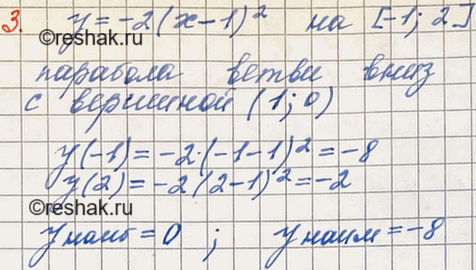 3. y = -2(x-1)² на [-1; 2]
©reshak.ru
парабола ветви вниз
с вершиной (1; 0)
y(-1) = -2·(-1-1)² = -8
y(2) = -2(2-1)² = -2
©reshak.ru
y наиб = 0 ; y наим = -8